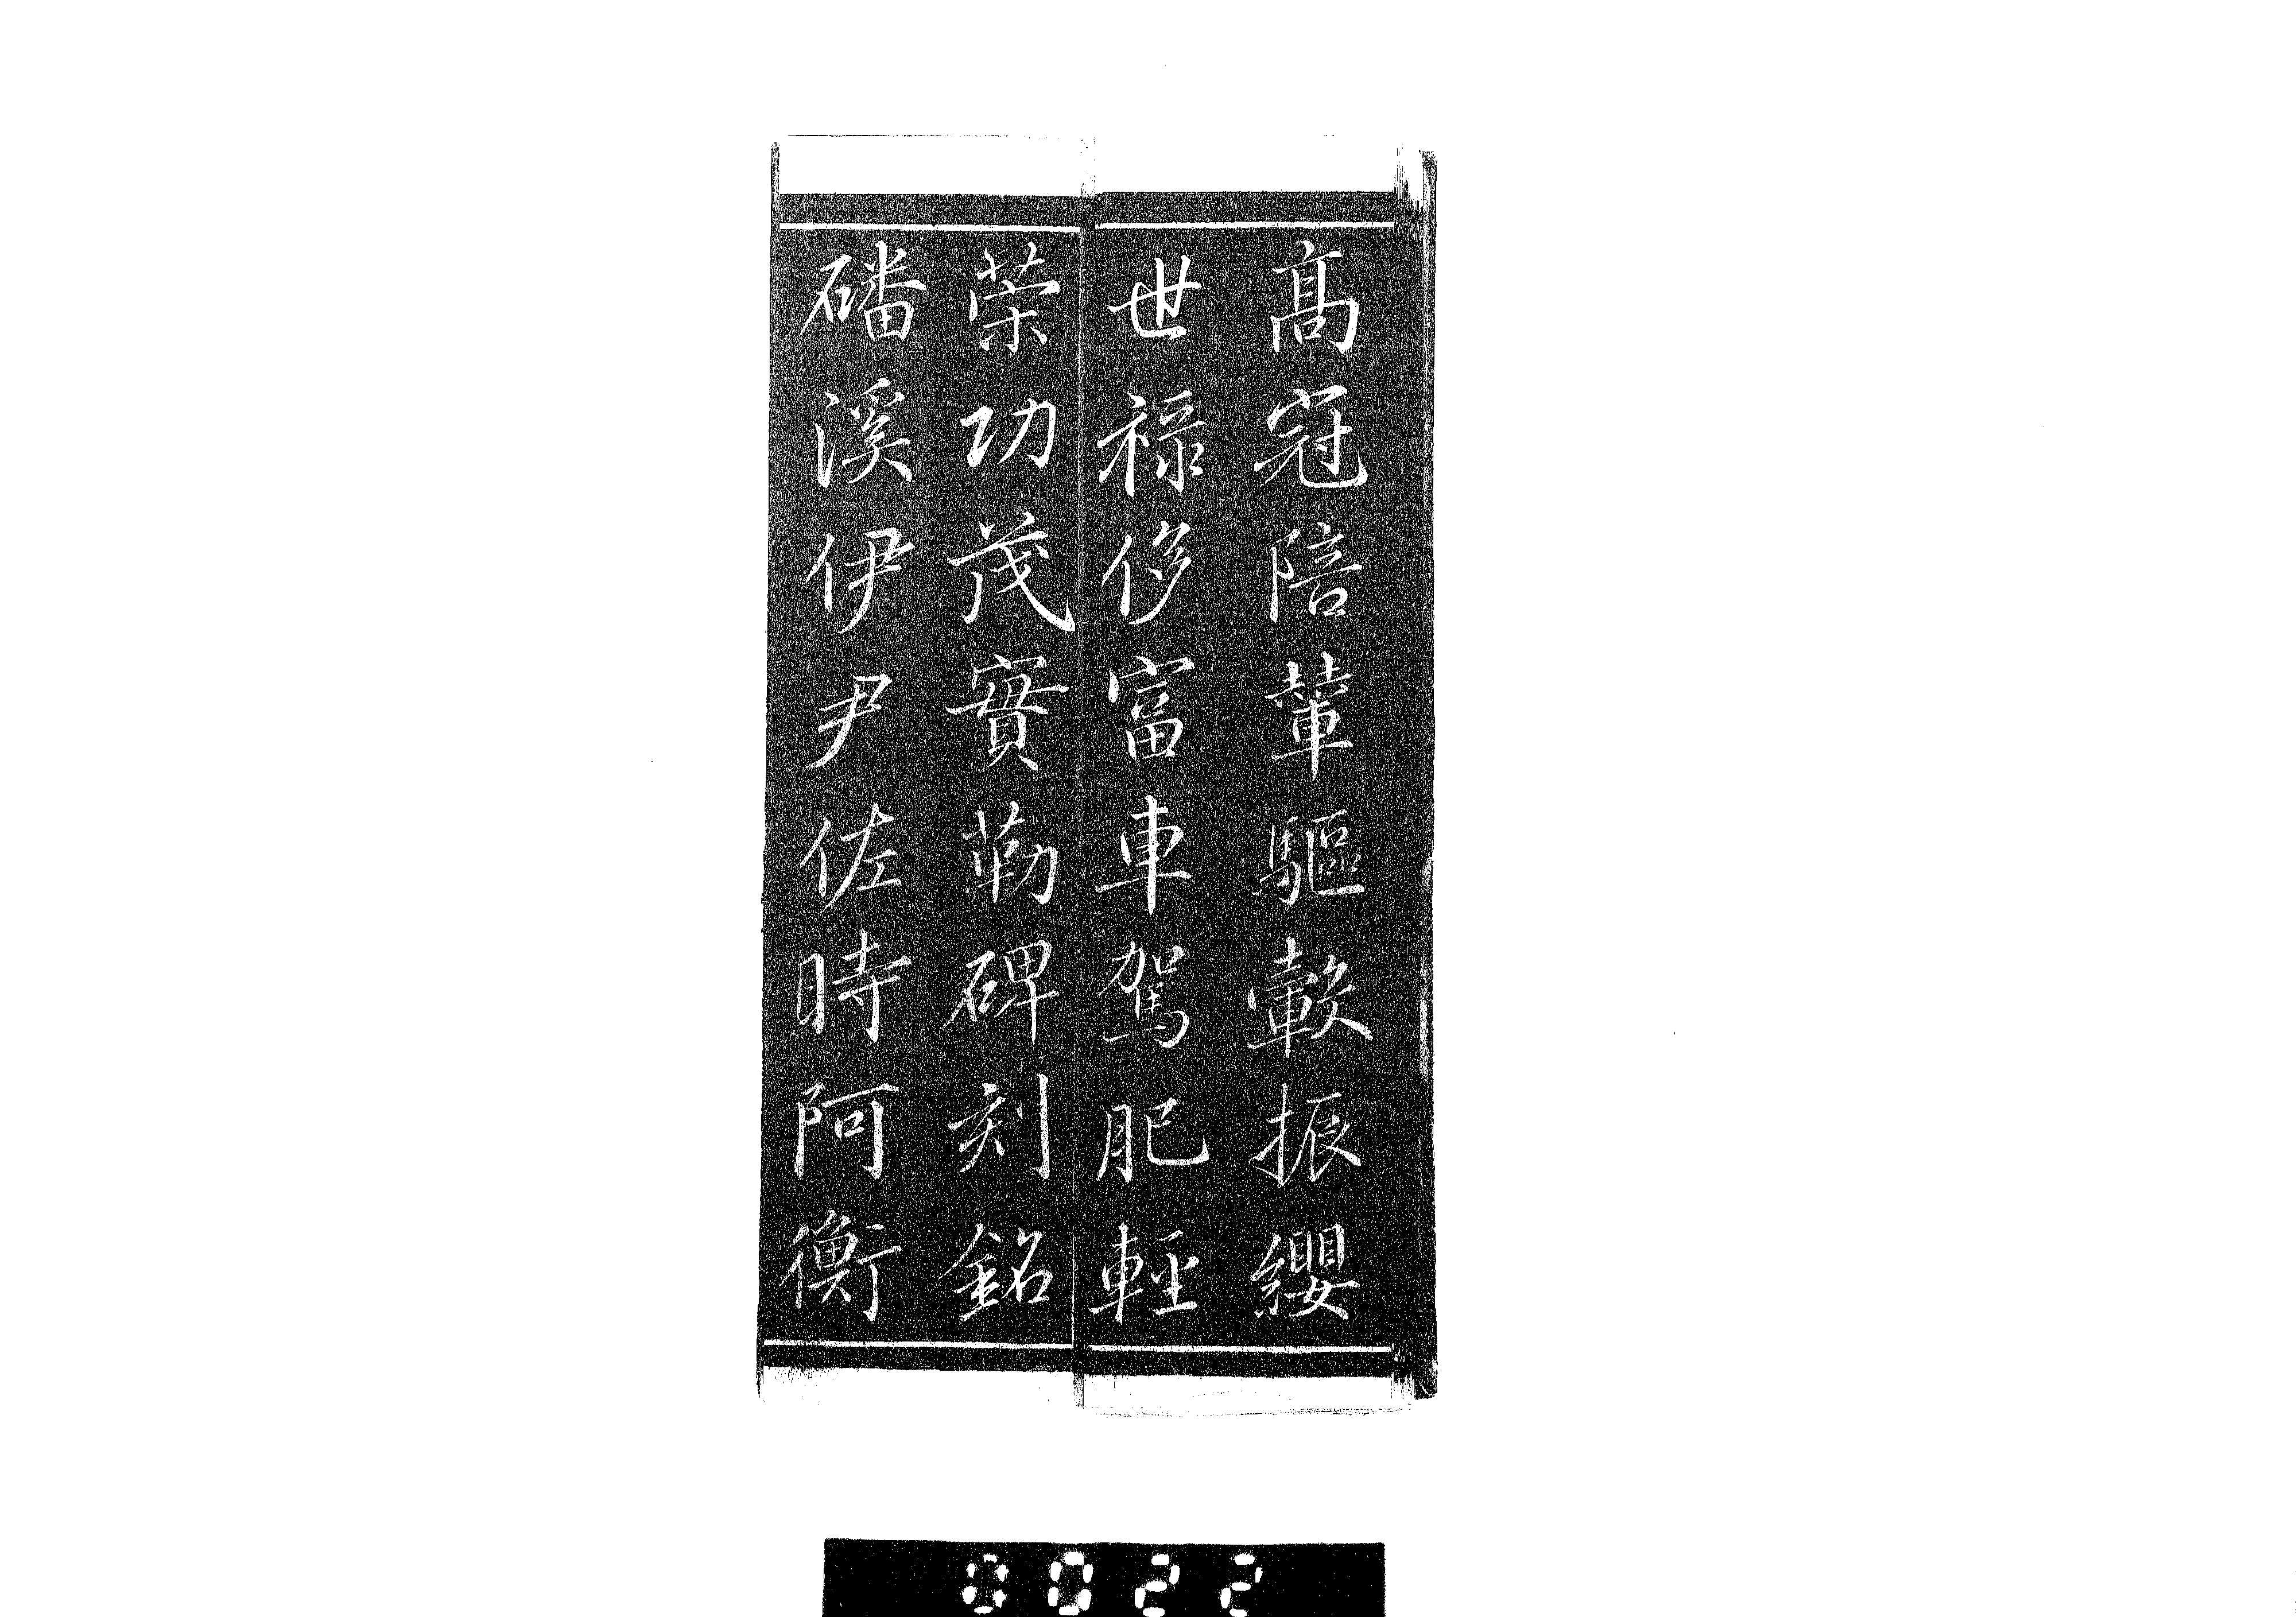 高冠陪輦驅轂振纓
世祿侈富車駕肥輕
荣功茂實勒碑刻銘
磻溪伊尹佐時阿衡
0022